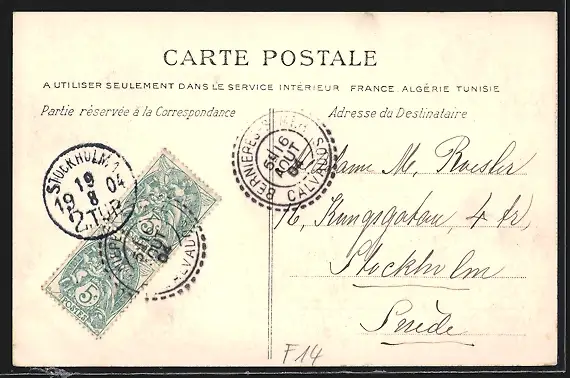 CARTE POSTALE
A UTILISER SEULEMENT DANS LE SERVICE INTERIEUR FRANCE ALGÉRIE TUNISIE
Partie réservée à la Correspondance
Adresse du Destinataire
STOCKHOLM 1
19
19 8 04
2.TUR
BERNIERES S MER
16
AOUT
04
CALVADOS
M. Roesler
16, Kungsgatan, 4 tr,
Stockholm
Suède
5c
POSTES
F14